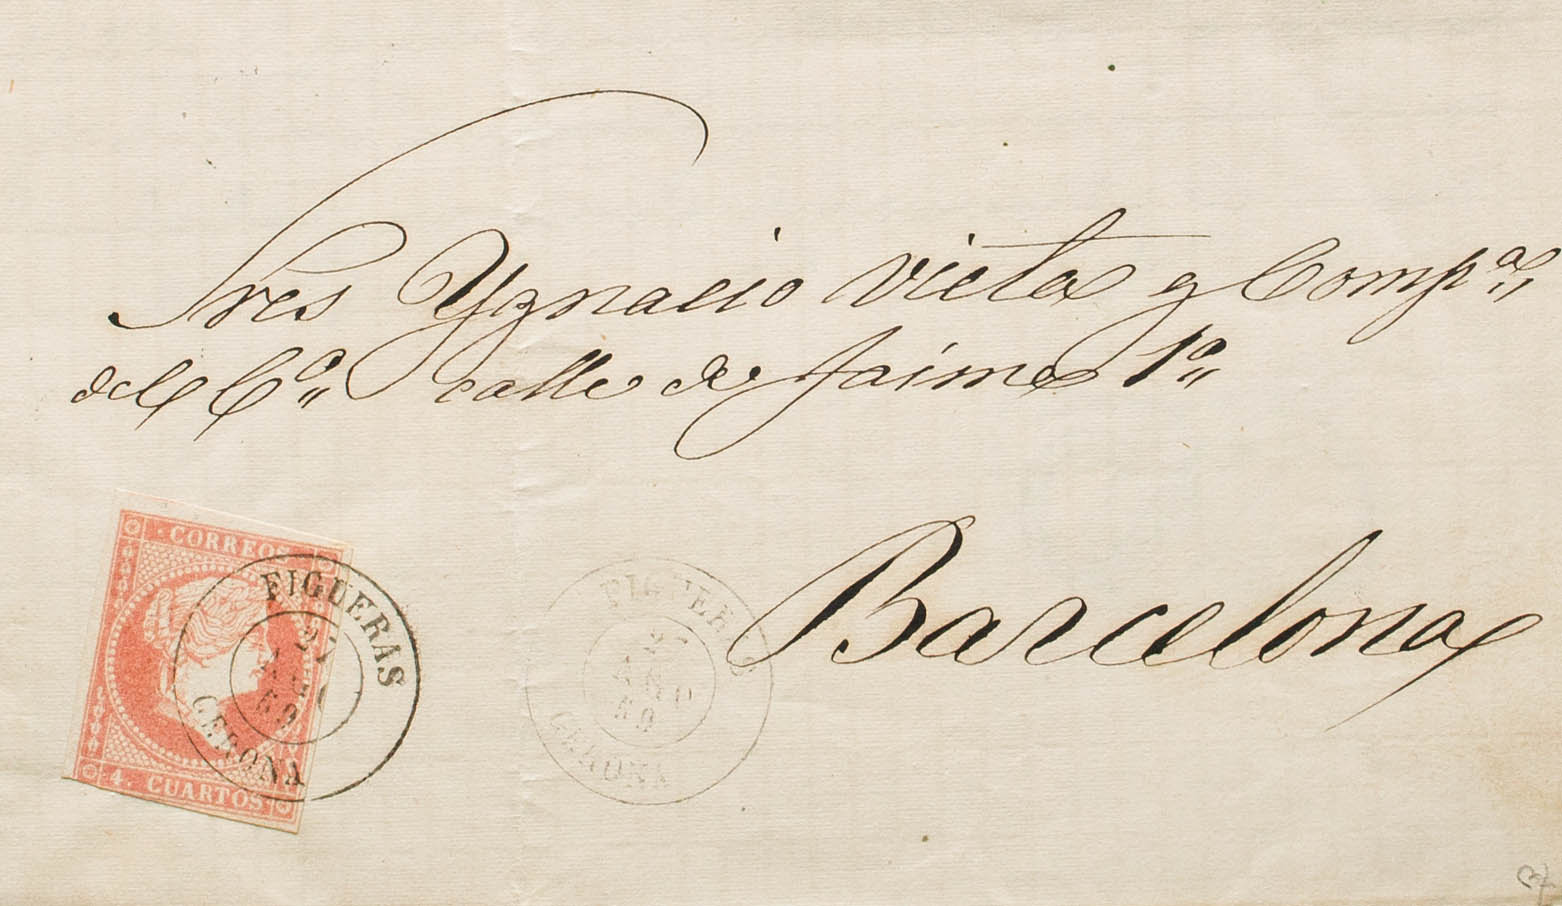 Sres Ygnacio Vieta y Comp.ª
del C.º calle de Jaime 1º
Barcelona
CORREOS
4. CUARTOS
FIGUERAS
GERONA
FIGUERAS
GERONA